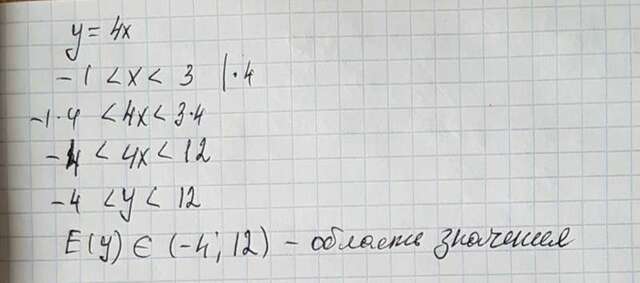 y = 4x
-1 < x < 3 |·4
-1·4 < 4x < 3·4
-4 < 4x < 12
-4 < y < 12
E(y) ∈ (-4; 12) - область значения